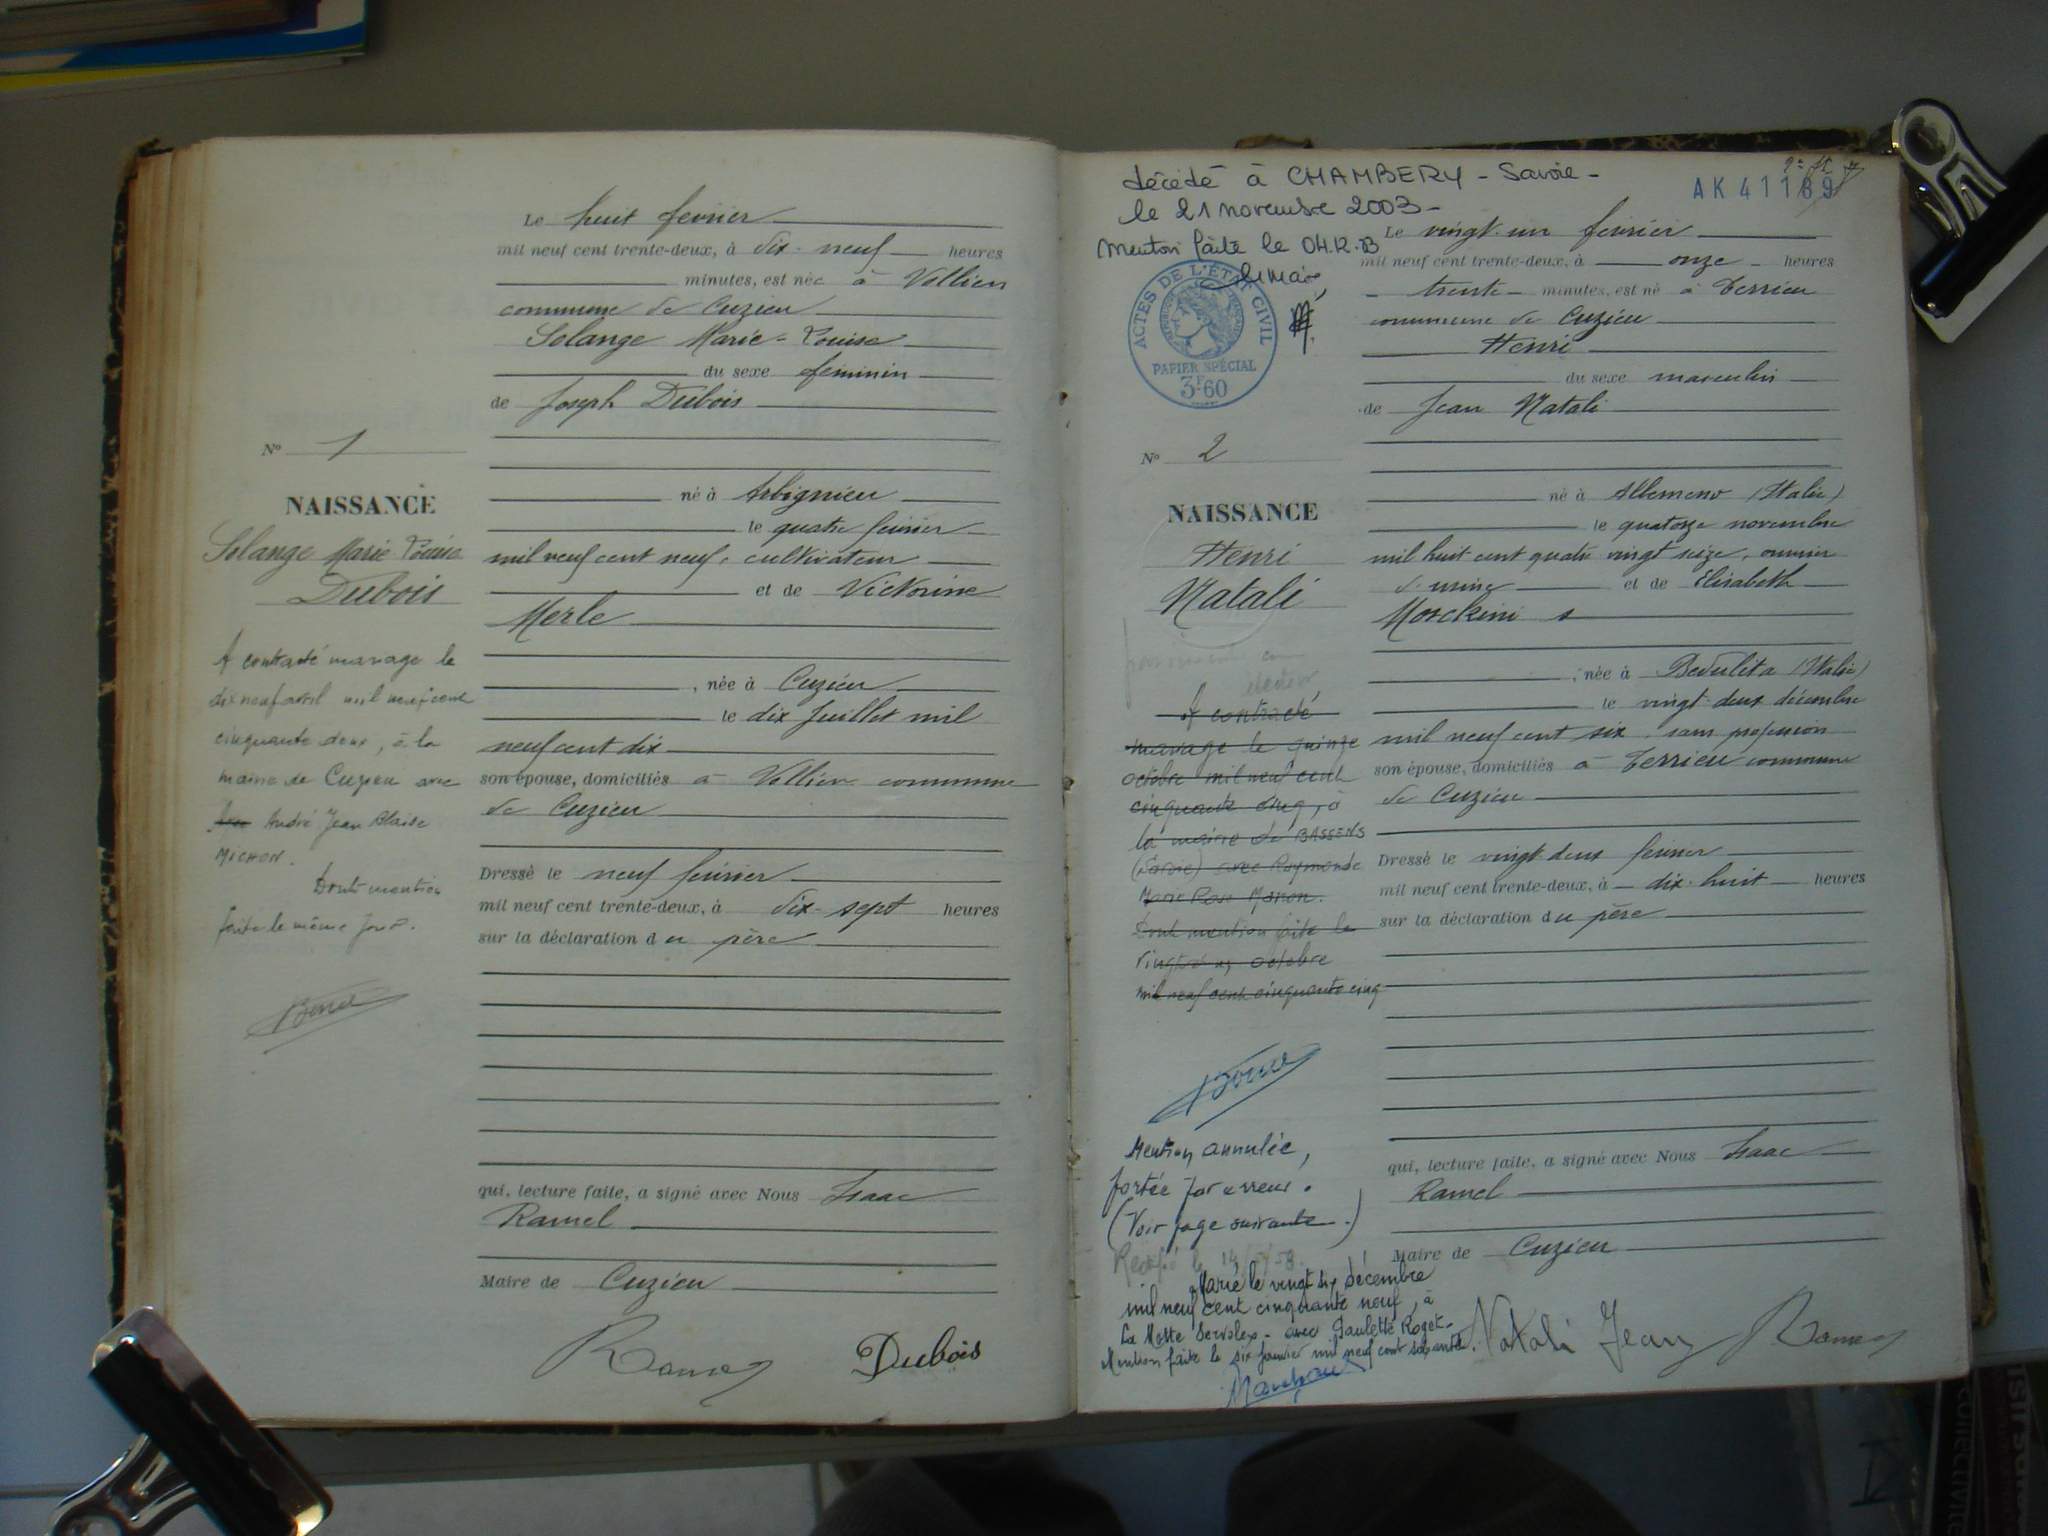 Le huit février
mil neuf cent trente-deux, à dix-neuf heures
minutes, est née à Vollien
commune de Cuzieu
Solange Marie-Louise
du sexe féminin
de Joseph Dubois
né à Arbignieu
le quatre février
mil neuf cent neuf, cultivateur
et de Victorine
Merle
, née à Cuzieu
le dix Juillet mil
neuf cent dix
son épouse, domiciliés à Vollien commune
de Cuzieu
Dressé le neuf février
mil neuf cent trente-deux, à dix-sept heures
sur la déclaration du père
qui, lecture faite, a signé avec Nous Isaac
Ramel
Maire de Cuzieu
Ramel Dubois
No 1
NAISSANCE
Solange Marie Louise
Dubois
A contracté mariage le
dix neuf avril mil neuf cent
cinquante deux, à la
mairie de Cuzieu avec
avec André Jean Blaise
MICHON.
Dont mention
faite le même jour.
décédé à CHAMBERY - Savoie -
le 21 novembre 2003 -
Mention faite le 04.12.03
Le Maire,
ACTES DE L'ÉTAT CIVIL
PAPIER SPÉCIAL
3F60
AK 41189
Le vingt-un février
mil neuf cent trente-deux, à onze heures
trente minutes, est né à Terrieu
commune de Cuzieu
Henri
du sexe masculin
de Jean Natali
né à Albemeno (Italie)
le quatorze novembre
mil huit cent quatre vingt seize, ouvrier
d'usine et de Elisabeth
Morckini
, née à Bedulita (Italie)
le vingt-deux décembre
mil neuf cent six, sans profession
son épouse, domiciliés à Terrieu commune
de Cuzieu
Dressé le vingt-deux février
mil neuf cent trente-deux, à dix-huit heures
sur la déclaration du père
qui, lecture faite, a signé avec Nous Isaac
Ramel
Maire de Cuzieu
Natali Jean Ramel
No 2
NAISSANCE
Henri
Natali
A contracté
mariage le quinze
octobre mil neuf cent
cinquante cinq, à
la mairie de BASSENS
(Savoie) avec Raymonde
Marie Rose
Dont mention faite le
vingt octobre
mil neuf cent cinquante cinq
Mention annulée,
portée par erreur.
(Voir page suivante.)
Rectifié le
Marié le vingt six décembre
mil neuf cent cinquante neuf, à
La Motte Servolex - avec Paulette Roget.
Mention faite le six janvier mil neuf cent soixante.